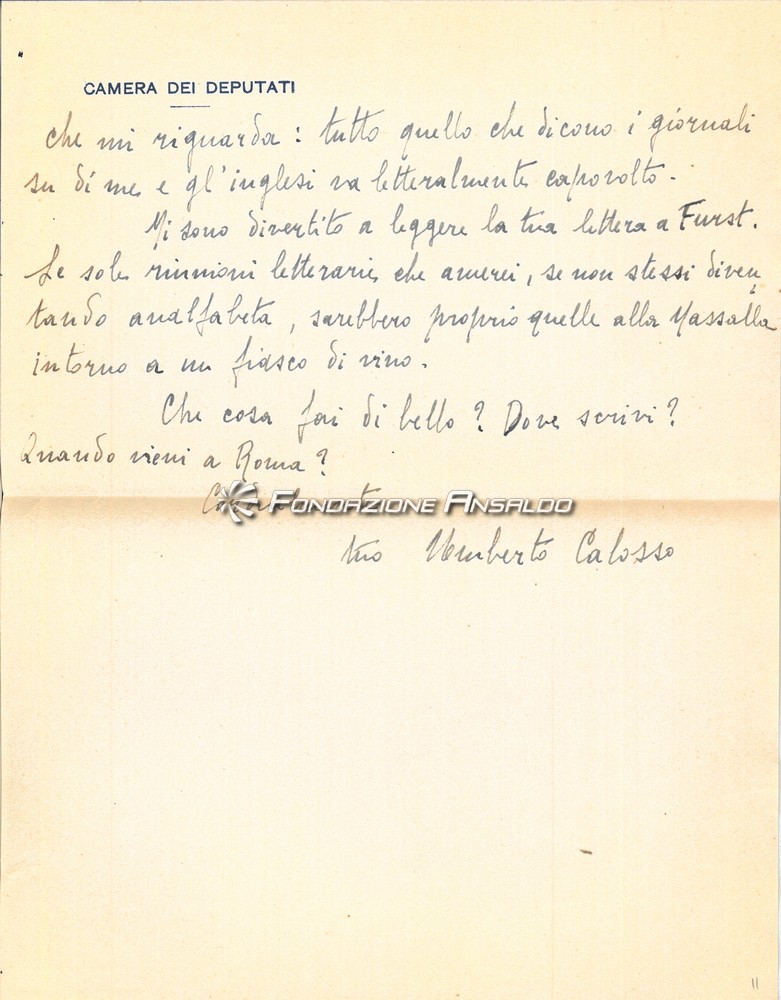 CAMERA DEI DEPUTATI
che mi riguarda: tutto quello che dicono i giornali
su di me e gl'inglesi va letteralmente capovolto.
Mi sono divertito a leggere la tua lettera a Furst.
Le sole riunioni letterarie che amerei, se non stessi diven
tando analfabeta, sarebbero proprio quelle alla Massalla
intorno a un fiasco di vino.
Che cosa fai di bello? Dove scrivi?
Quando vieni a Roma?
FONDAZIONE ANSALDO
tuo Umberto Calosso
11